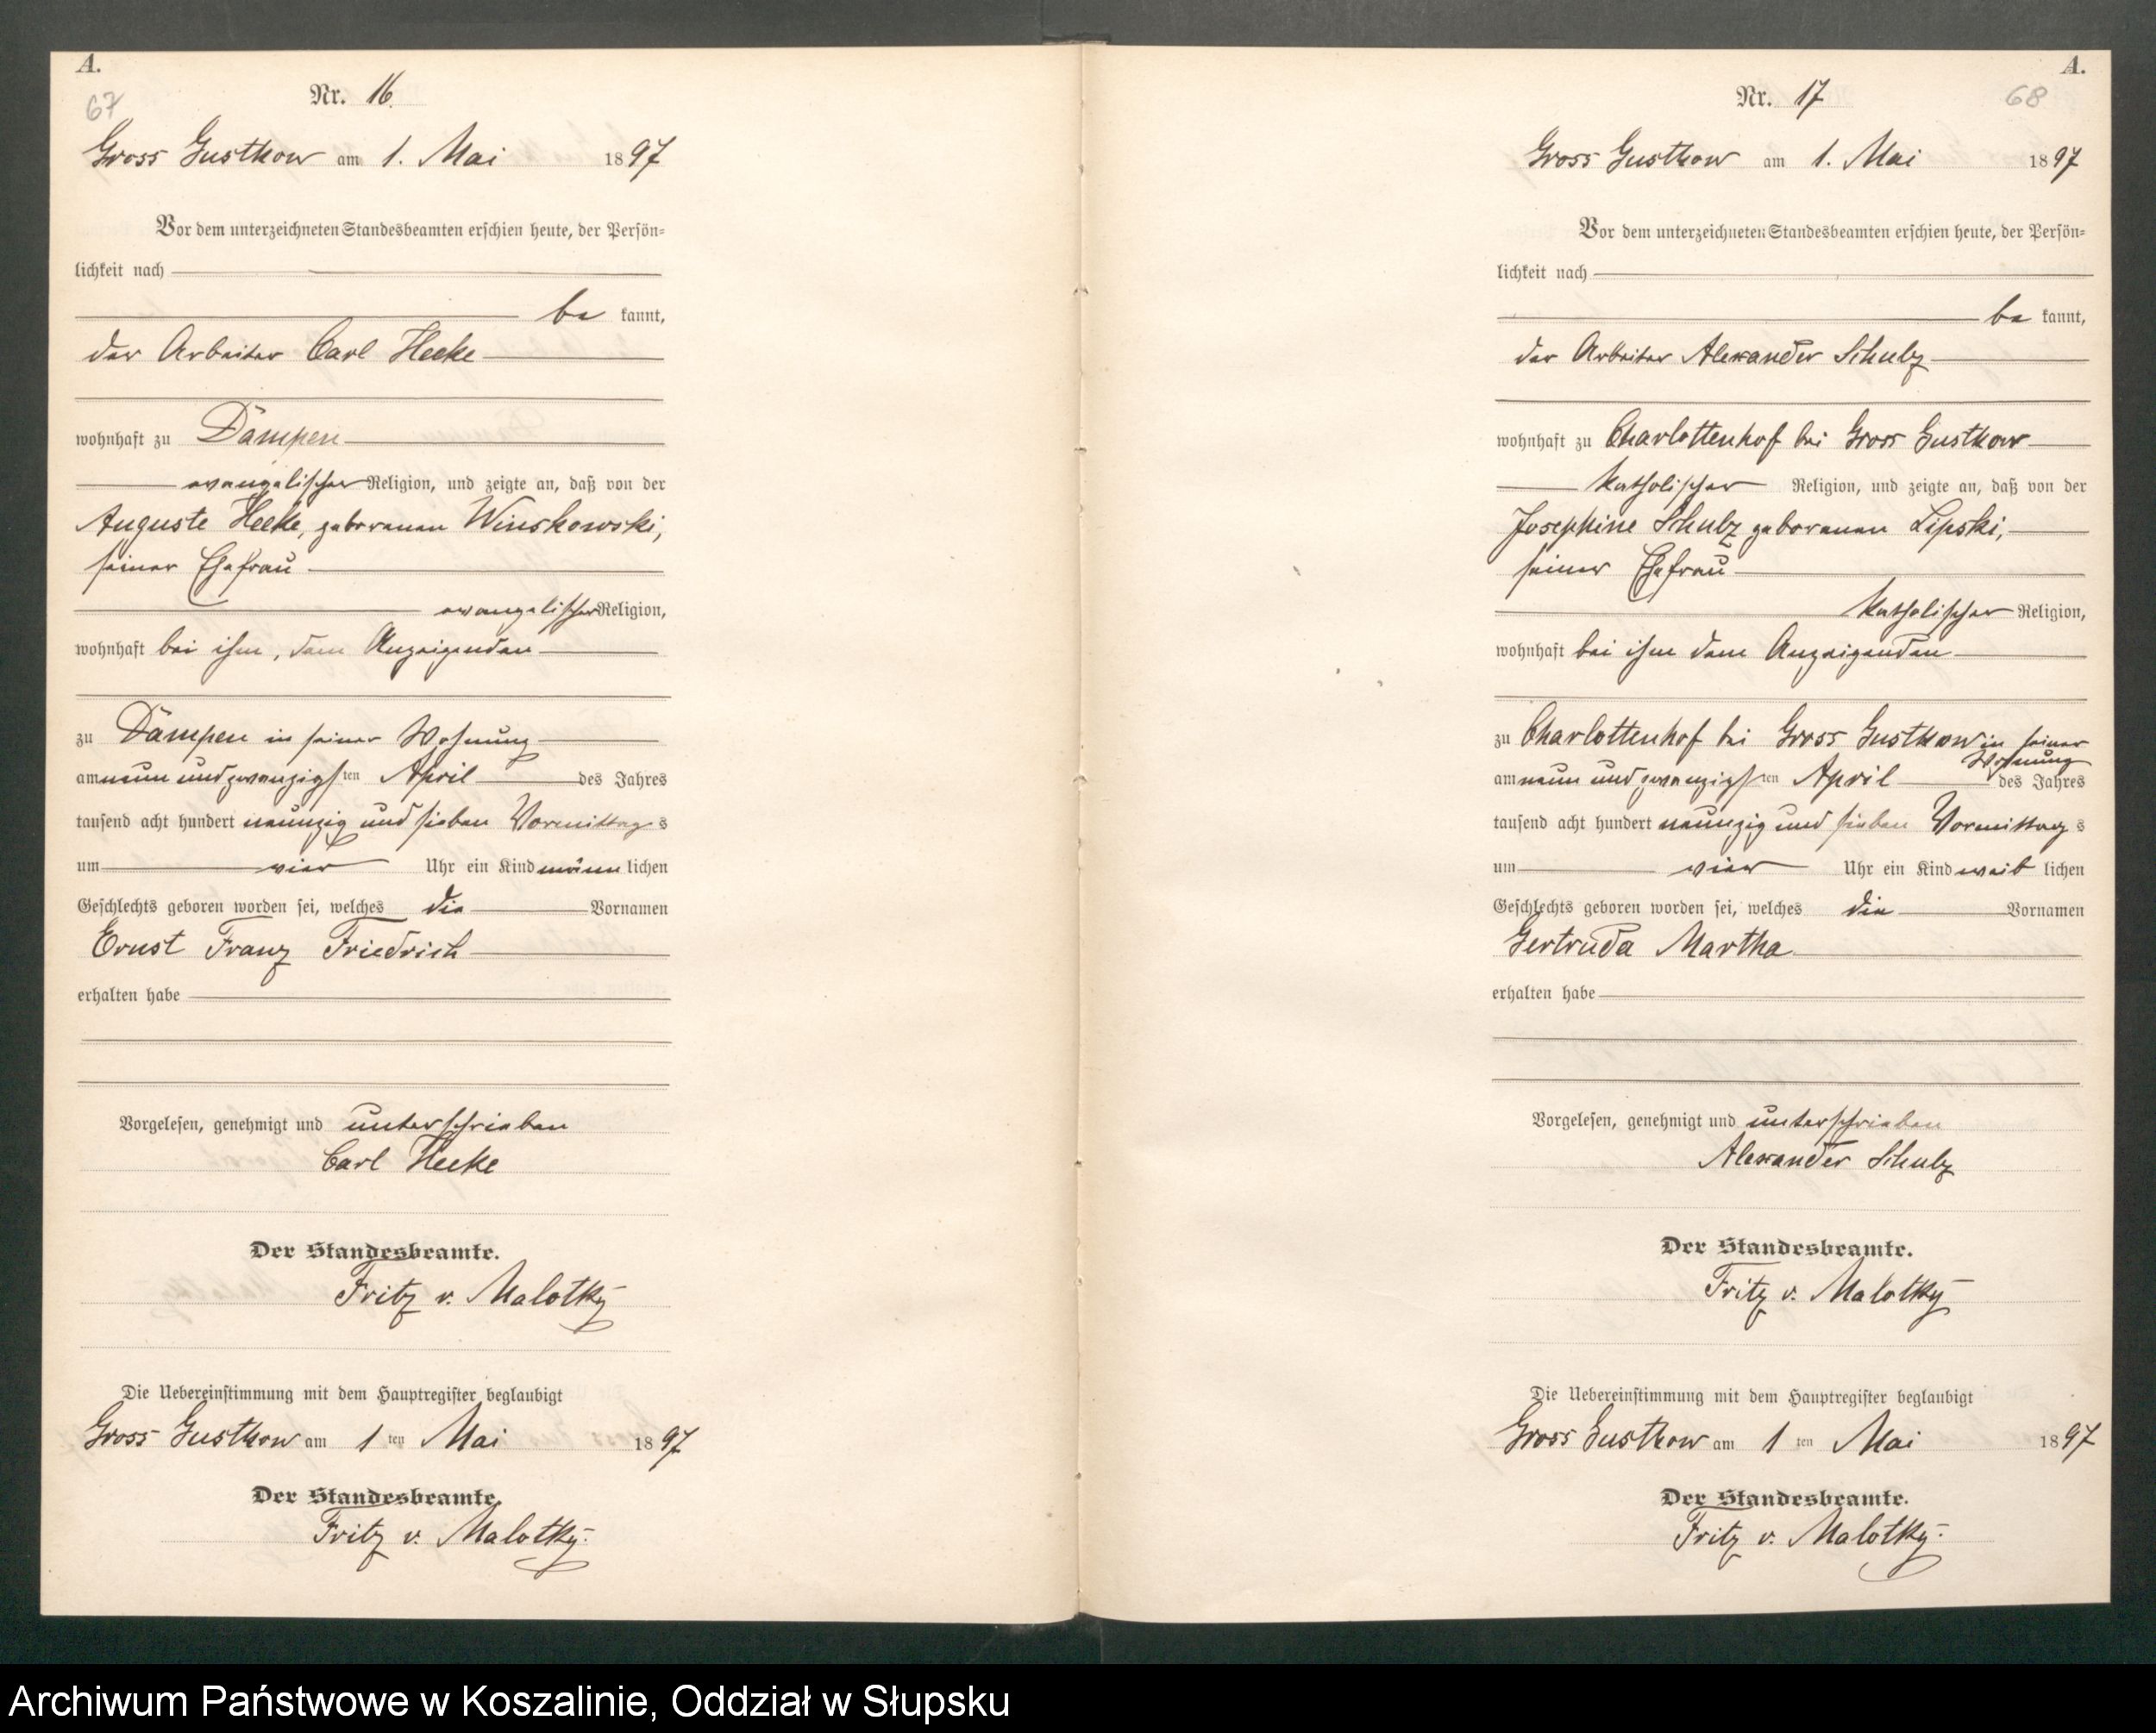 A.
67
Nr. 16.
Gross Gustkow am 1. Mai 1897
Vor dem unterzeichneten Standesbeamten erschien heute, der Persön-
lichkeit nach
be kannt,
der Arbeiter Carl Hecke
wohnhaft zu Dampen
evangelischer Religion, und zeigte an, daß von der
Auguste Hecke, geborenen Winskowski,
seiner Ehefrau
evangelischer Religion,
wohnhaft bei ihm, dem Anzeigenden
zu Dampen in seiner Wohnung
am neun und zwanzigsten April des Jahres
tausend acht hundert neunzig und sieben Vormittags
um vier Uhr ein Kind männlichen
Geschlechts geboren worden sei, welches die Vornamen
Ernst Franz Friedrich
erhalten habe
Vorgelesen, genehmigt und unterschrieben
Carl Hecke
Der Standesbeamte.
Fritz v. Malotky
Die Uebereinstimmung mit dem Hauptregister beglaubigt
Gross Gustkow am 1ten Mai 1897
Der Standesbeamte.
Fritz v. Malotky.
A.
68
Nr. 17
Gross Gustkow am 1. Mai 1897
Vor dem unterzeichneten Standesbeamten erschien heute, der Persön-
lichkeit nach
be kannt,
der Arbeiter Alexander Schulz
wohnhaft zu Charlottenhof bei Gross Gustkow
katholischer Religion, und zeigte an, daß von der
Josephine Schulz geborenen Lipski,
seiner Ehefrau
katholischer Religion,
wohnhaft bei ihm dem Anzeigenden
zu Charlottenhof bei Gross Gustkow in seiner
Wohnung
am neun und zwanzigsten April des Jahres
tausend acht hundert neunzig und sieben Vormittags
um vier Uhr ein Kind weiblichen
Geschlechts geboren worden sei, welches die Vornamen
Gertruda Martha
erhalten habe
Vorgelesen, genehmigt und unterschrieben
Alexander Schulz
Der Standesbeamte.
Fritz v. Malotky
Die Uebereinstimmung mit dem Hauptregister beglaubigt
Gross Gustkow am 1ten Mai 1897
Der Standesbeamte.
Fritz v. Malotky.
Archiwum Państwowe w Koszalinie, Oddział w Słupsku